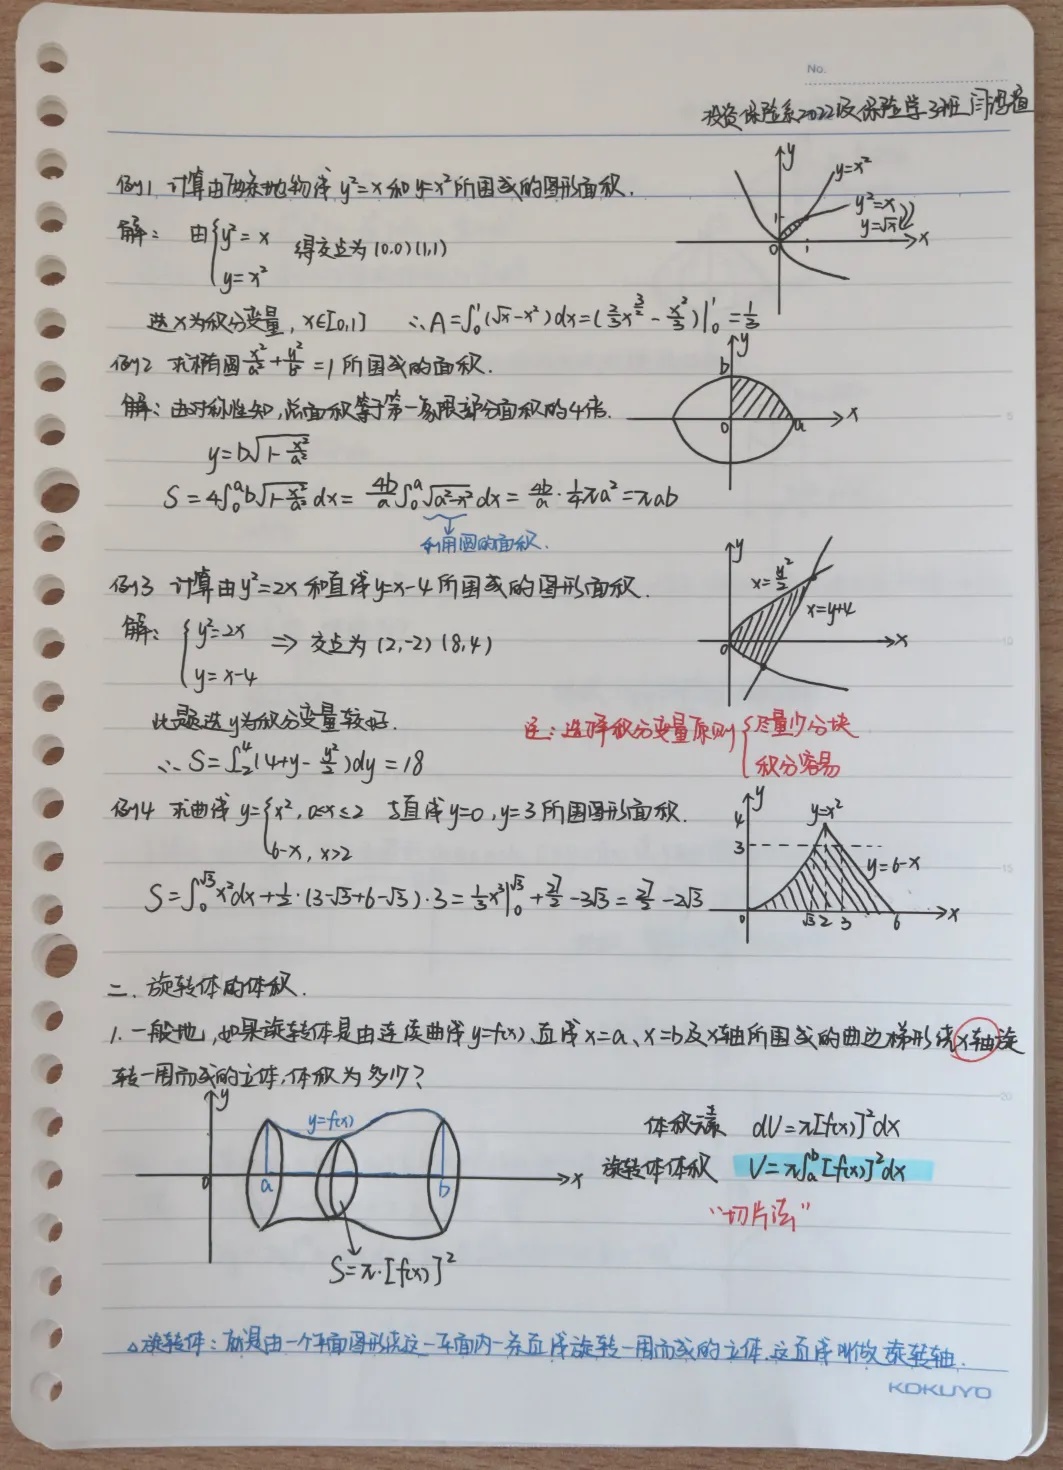 No.
投资保险系2022级保险学3班 闫鸿
例1 计算由两条抛物线 y²=x 和 y=x² 所围成的图形面积.
解: 由 { y²=x
y=x²
得交点为 (0.0) (1,1)
y
y=x²
y²=x
y=√x
1
0 1 x
选x为积分变量, x∈[0,1] ∴A=∫₀¹(√x-x²)dx=(⅔x^(3/2)-x³/3)|₀¹=⅓
例2 求椭圆 x²/a²+y²/b²=1 所围成的面积.
解: 由对称性知, 总面积等于第一象限部分面积的4倍.
y
b
0 a x
y=b√(1-x²/a²)
S=4∫₀ᵃb√(1-x²/a²)dx=4b/a∫₀ᵃ√(a²-x²)dx=4b/a·¼πa²=πab
利用圆的面积.
例3 计算由 y²=2x 和直线 y=x-4 所围成的图形面积.
解: { y²=2x
y=x-4
⇒ 交点为 (2,-2) (8,4)
y
x=y²/2
x=y+4
0 x
此题选y为积分变量较好.
∴ S=∫₋₂⁴(4+y-y²/2)dy=18
注: 选择积分变量原则 { 尽量少分块
积分容易
例4 求曲线 y={ x², 0<x≤2
6-x, x>2
与直线 y=0, y=3 所围图形面积.
S=∫₀^√3 x²dx+½·(3-√3+6-√3)·3=⅓x³|₀^√3+27/2-3√3=27/2-2√3
y
4
3
y=x²
y=6-x
0 √3 2 3 6 x
二. 旋转体的体积.
1. 一般地, 如果旋转体是由连续曲线 y=f(x)、直线 x=a、x=b及x轴所围成的曲边梯形绕x轴旋
转一周而成的立体, 体积为多少?
y
y=f(x)
0 a b x
S=π·[f(x)]²
体积元素 dV=π[f(x)]²dx
旋转体体积 V=π∫ₐᵇ[f(x)]²dx
“切片法”
△旋转体: 就是由一个平面图形绕这一平面内一条直线旋转一周而成的立体. 这直线叫做旋转轴.
KOKUYO